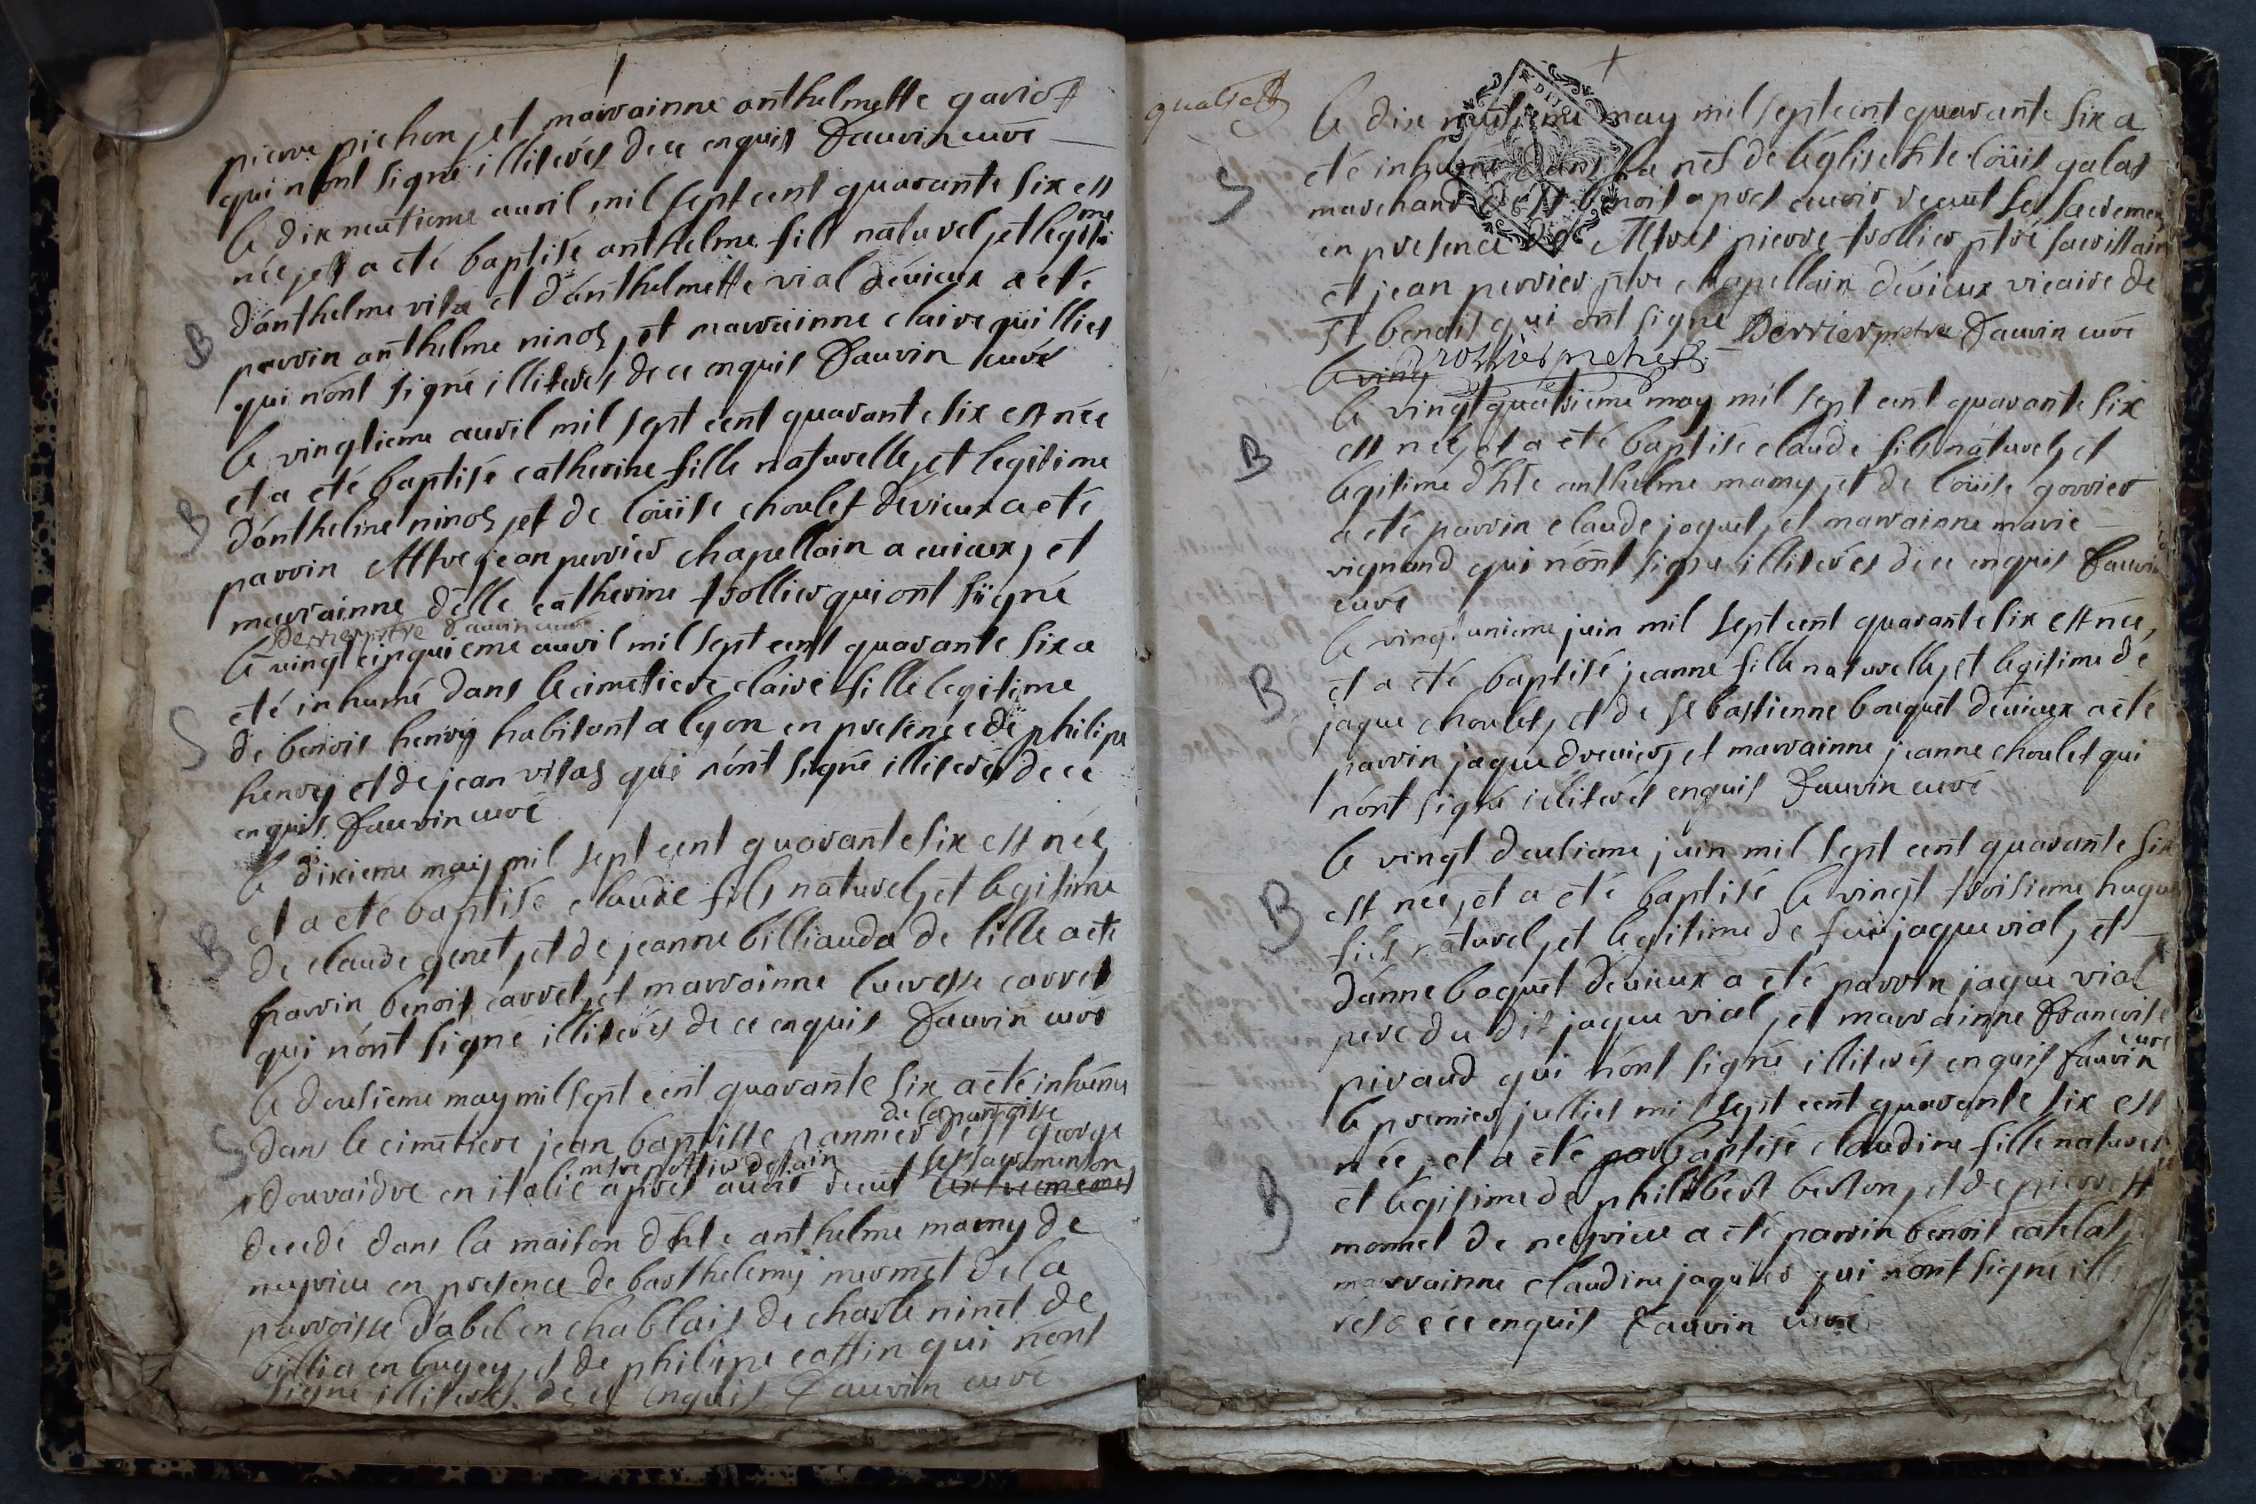 pierre pichon, et marrainne anthelmette gariot
qui n'ont signé illiterés de ce enquis Fauvin curé
le dix neutieme auril mil sept cent quarante six est
née, et a eté baptisé anthelme fils naturel, et legiti
me
d'anthelme vita et d'anthelmette vial d'évieux a eté
parrin anthelme ninos, et marrainne claire quilliet
qui n'ont signé illiterés de ce enquis Fauvin curé
B
le vingtieme auril mil sept cent quarante six est née
et a eté baptisé catherine fille naturelle, et legitime
d'anthelme ninos, et de loüise choulet d'évieux a eté
parrin Mtre jean perrier chapellain a euieux, et
marrainne d'elle catherine trollier qui ont siigné
B
Perrier ptre Fauvin curé
le vingt cinquieme auril mil sept cent quarante six a
eté inhumé dans le cimetiere claire fille legitime
de benoit henry habitant a lyon en presence de philipe
henry et de jean vitas qui n'ont signé illiterés de ce
enquis Fauvin curé
S
le dixieme may mil sept cent quarante six est née,
et a eté baptisé claude fils naturel, et legitime
de claude genet, et de jeanne billiauda de lille a eté
parrin benoit carret, et marrainne lucresse carret
qui n'ont signé illiterés de ce enquis Fauvin curé
B
le deusieme may mil sept cent quarante six a eté inhumé
de la parroisse
dans le cimetiere jean baptiste pannier de st george
S
douraidre en italie après auoir recut les sacremens
decedé dans la maison d'hte anthelme mamy de
neyrieu en presence de barthelemy mermet de la
parroisse d'abel en chablais de charle ninet de
billia en bugey, et de philipe cattin qui n'ont
signé illiterés de ce enquis Fauvin curé
le dix neutieme may mil sept cent quarante six a
eté inhumé dans la nef de l'église hte loüis galas
marchand de st benoit apres auoir recut ses sacremens
en presence de Mtres pierre trollier ptre sacristain
et jean perrier ptre chapellain d'évieux vicaire de
st benoit qui ont signé Perrier pretre Fauvin curé
S
le ving
le vingt quatrieme may mil sept cent quarante six
est née, et a eté baptisé claude fils naturel, et
legitime d'hte anthelme mamy, et de loüise gorrier
a eté parrin claude jaquet, et marrainne marie
vignand qui n'ont signé illiterés de ce enquis Fauvin
curé
B
le vingt unieme juin mil sept cent quarante six est née,
et a eté baptisé jeanne fille naturelle, et legitime de
jaque choulet, et de sebastienne bouquet d'évieux a eté
parrin jaque drevier, et marrainne jeanne choulet qui
n'ont signé illiterés enquis Fauvin curé
B
le vingt deusieme juin mil sept cent quarante six
est née, et a eté baptisé le vingt troisieme hugue
fils naturel, et legitime de feu jaque vial, et
d'anne boquet d'évieux a eté parrin jaque vial
pere du dit jaque vial, et marrainne francoise
pivaud qui n'ont signé illiterés enquis Fauvin
curé
B
le premier julliet mil sept cent quarante six est
née, et a eté par baptisé claudine fille naturel
et legitime de philibert berton, et de pierrett
monnet de neyrieu a eté parrin benoit catelat
marrainne claudine jaquier qui n'ont signé illi
rés de ce enquis Fauvin curé
B